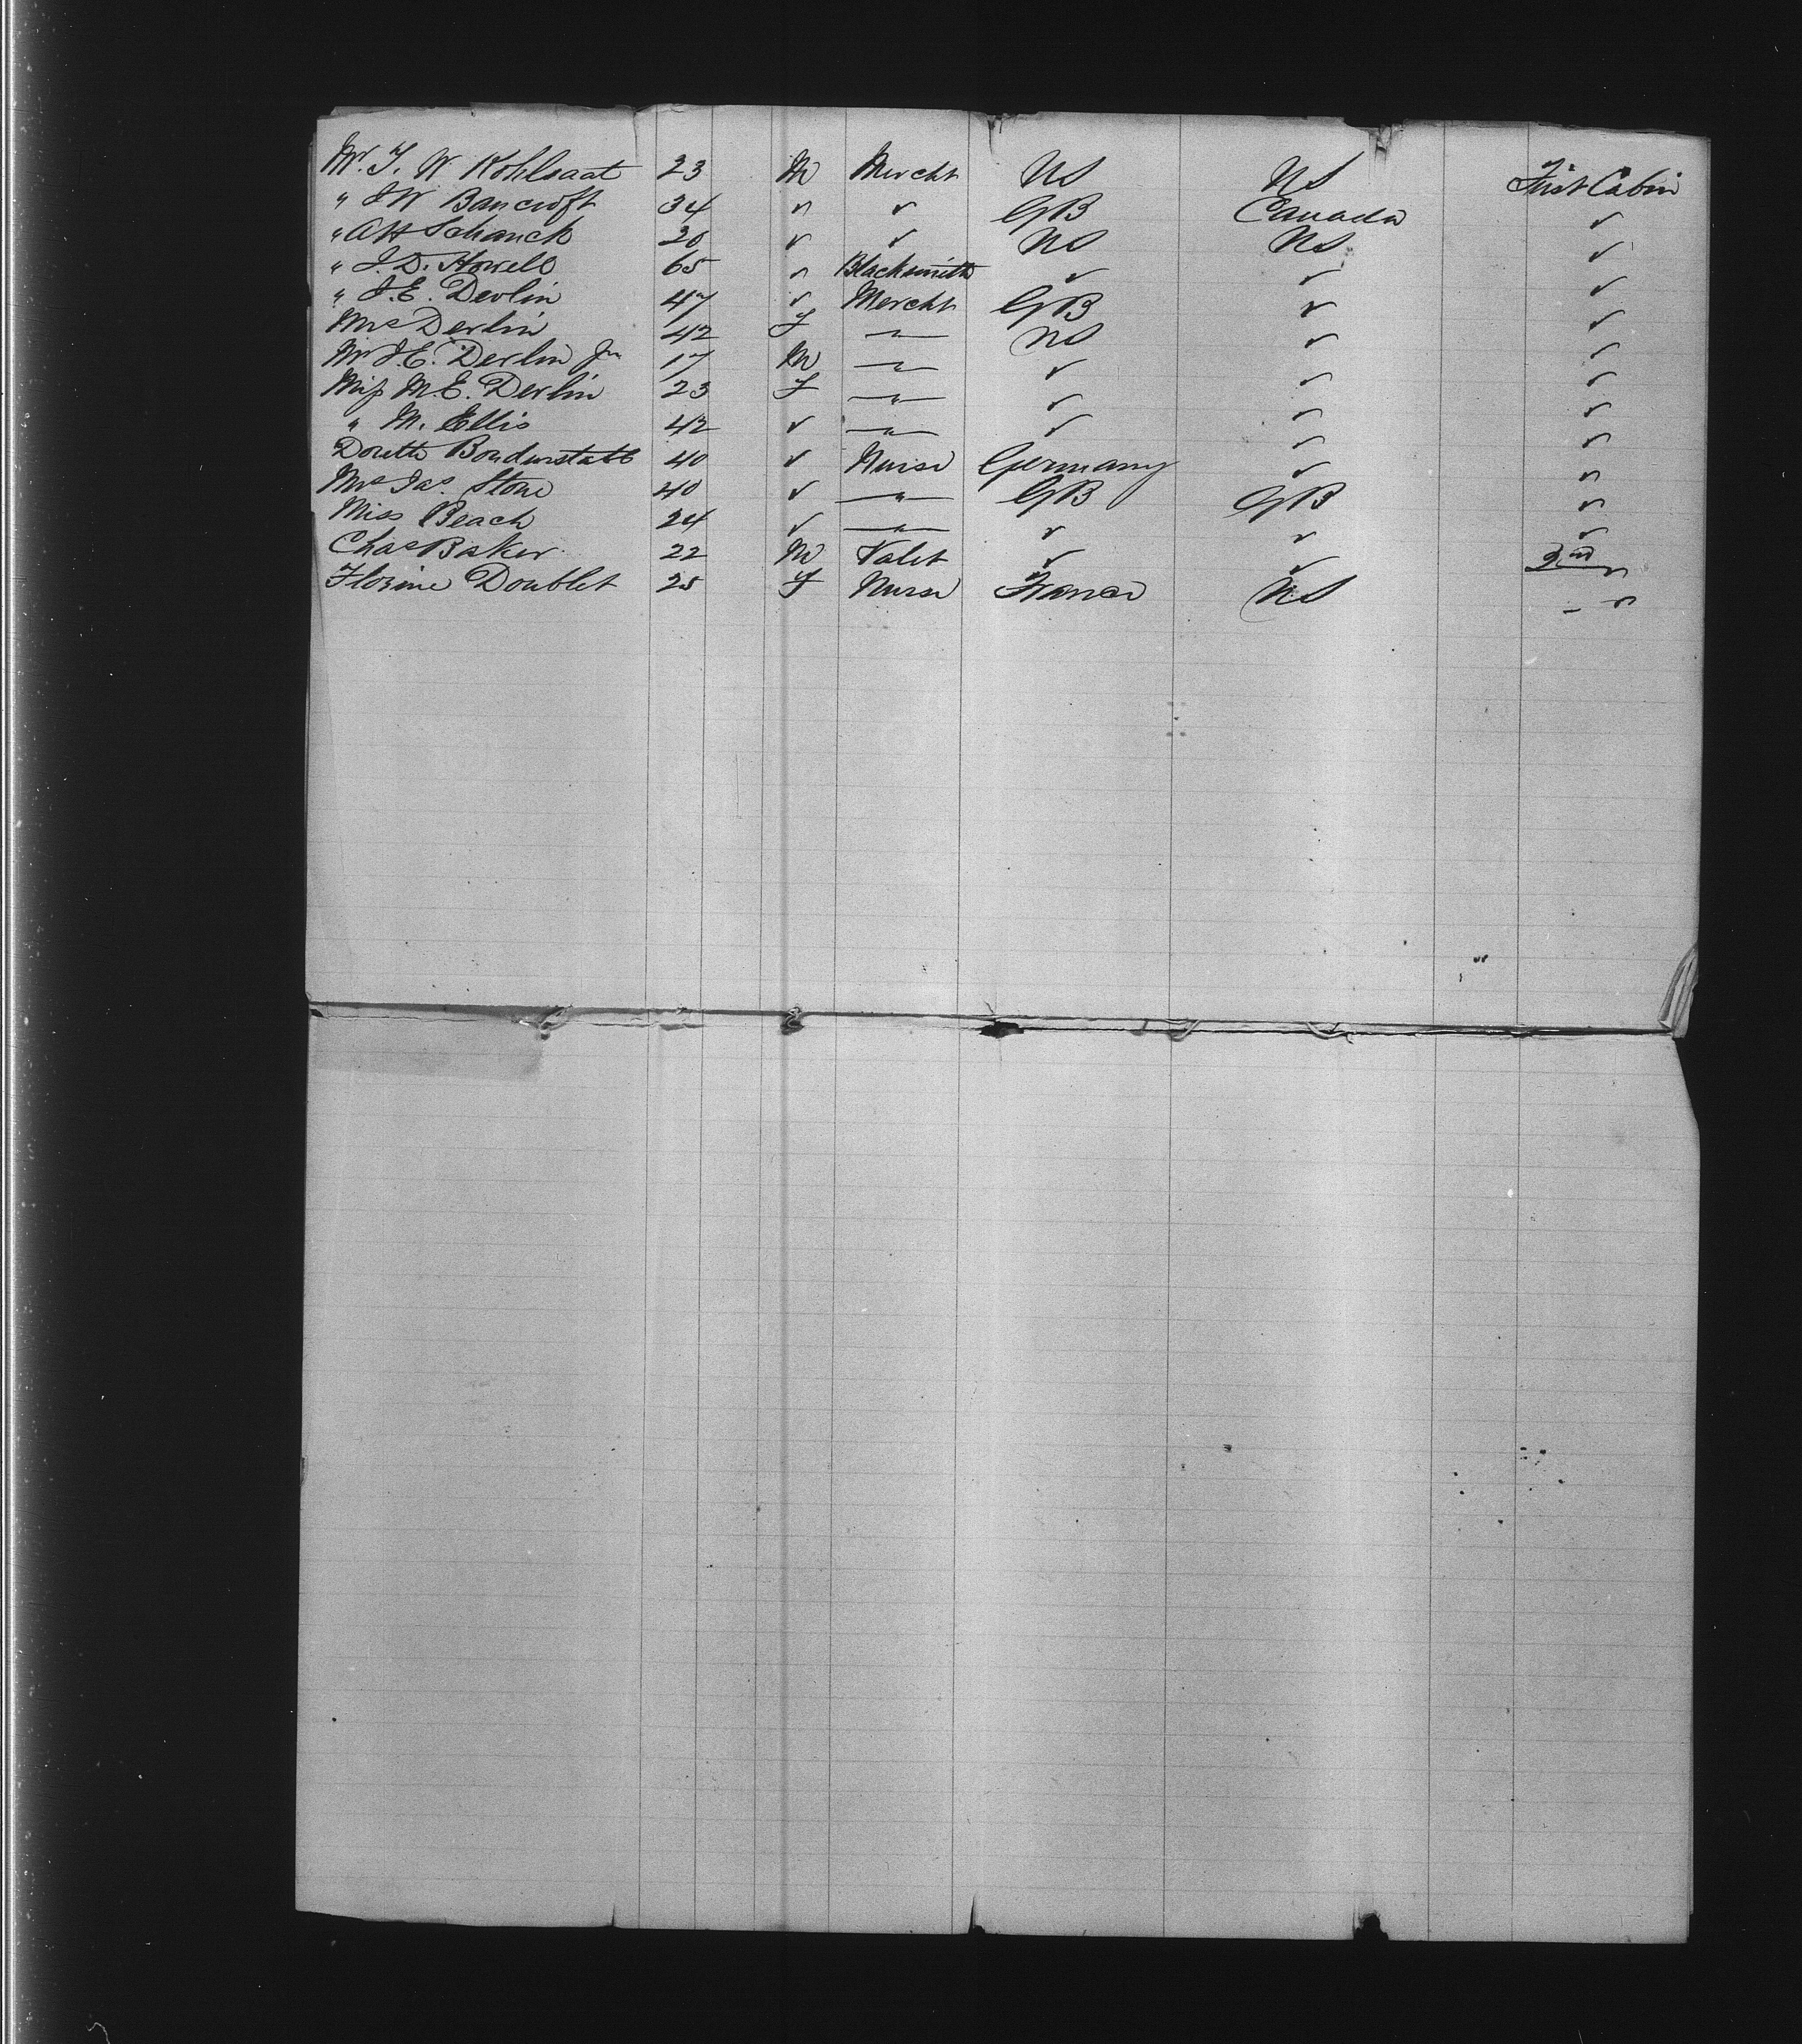 Mr. J. W. Kohlsaat 23 M Mercht US US First Cabin
" J W Bancroft 34 " " GB Canada "
" A H Schanck 20 " " US US "
" J. D. Howell 65 " Blacksmith " " "
" J. E. Devlin 47 " Mercht GB " "
Mrs Devlin 42 F — " — US " "
Mr J. E. Devlin Jr 17 M — " — " " "
Miss M. E. Devlin 23 F — " — " " "
" M. Ellis 42 " — " — " " "
Dorette 40 " Nurse Germany " "
Mrs Jas. Stone 40 " — " — GB GB "
Miss Beach 24 " — " — " " "
Chas Baker 22 M Valet " " 2nd "
Florine Doublet 25 F Nurse France US — "